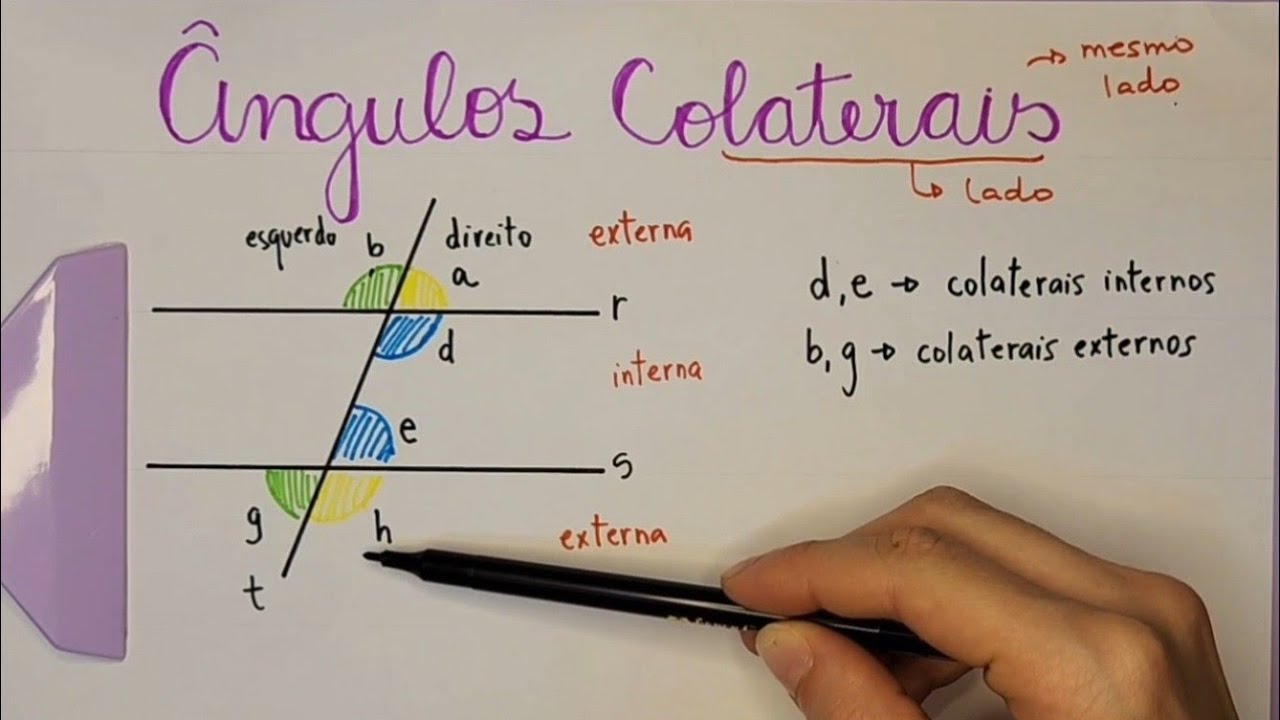 Ângulos Colaterais → mesmo
lado
↳ lado
esquerdo b direito externa
a
r
d
interna
e
s
g h externa
t
d, e → colaterais internos
b, g → colaterais externos